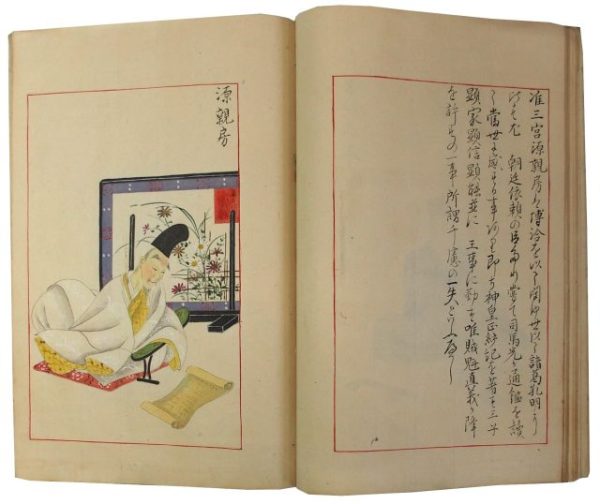 准三宮源親房ハ博洽を以て聞ゆ世以て諸葛孔明に
朝廷依頼の臣たり嘗て司馬光か通鑑を讀
て當世に感する事あり即ち神皇正統記を著す三子
顕家顕信顕能並に 王事に勤む唯賊魁直義か降
を許すの一事所謂千慮の一失といふへし
源親房